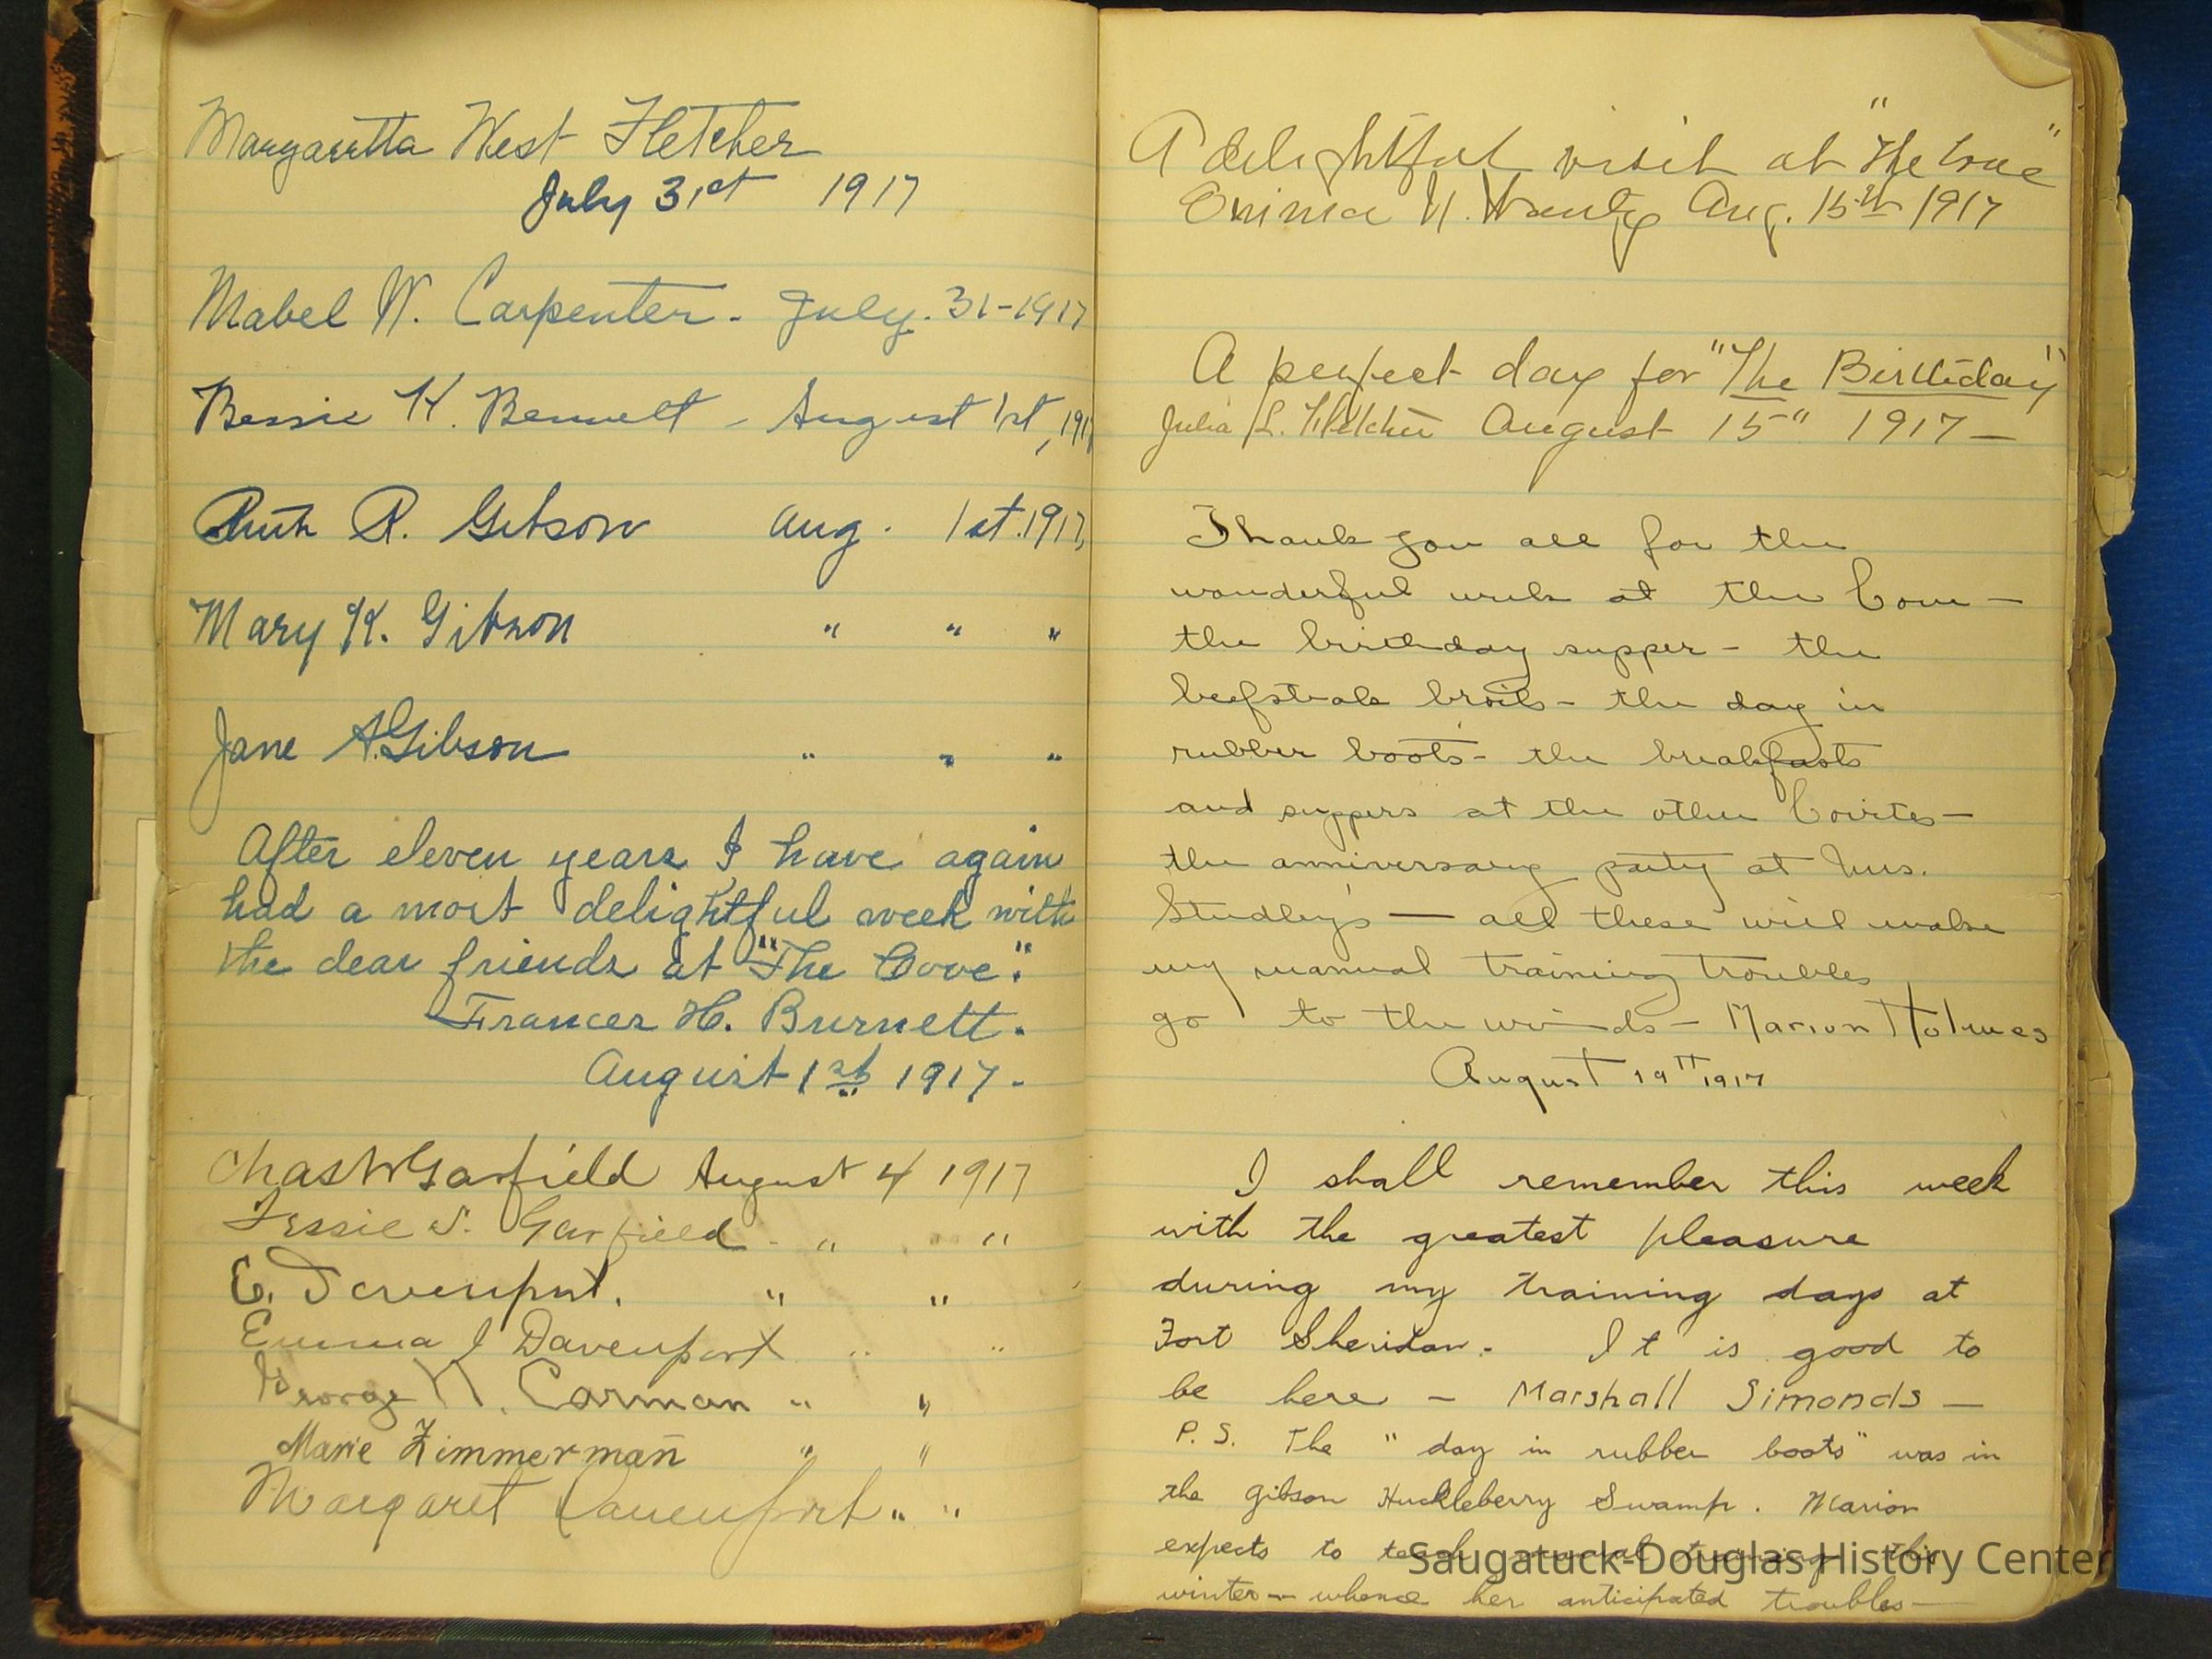 Margaretta West Fletcher
July 31st 1917
Mabel W. Carpenter - July. 31-1917
Bessie K. Bennett - August 1st, 1917
Ruth R. Gibson Aug. 1st. 1917,
Mary K. Gibson " " "
Jane A. Gibson " " "
After eleven years I have again
had a most delightful week with
the dear friends at "The Cove".
Frances H. Burnett.
August 1st 1917-
Chas W Garfield August 4 1917
Jessie S. Garfield - " "
E. Davenport. " "
Emma J Davenport " "
George N. Carman " "
Marie Zimmerman " "
Margaret Davenport " "
A delightful visit at "The Cove"
Emma N. Aug. 15th 1917
A perfect day for "The Birthday"
Julia L. Fletcher August 15" 1917-
Thank you all for the
wonderful week at the Cove -
the birthday supper - the
beefsteak broils - the day in
rubber boots - the breakfasts
and suppers at the other
the anniversary party at Mrs.
Studley's — all these will make
my manual training troubles
go to the winds - Marion Holmes
August 19TH 1917
I shall remember this week
with the greatest pleasure
during my training days at
Fort Sheridan. It is good to
be here - Marshall Simonds -
P.S. The "day in rubber boots" was in
the Gibson Huckleberry Swamp. Marion
expects to teach manual training this
winter - whence her anticipated troubles -
Saugatuck-Douglas History Center